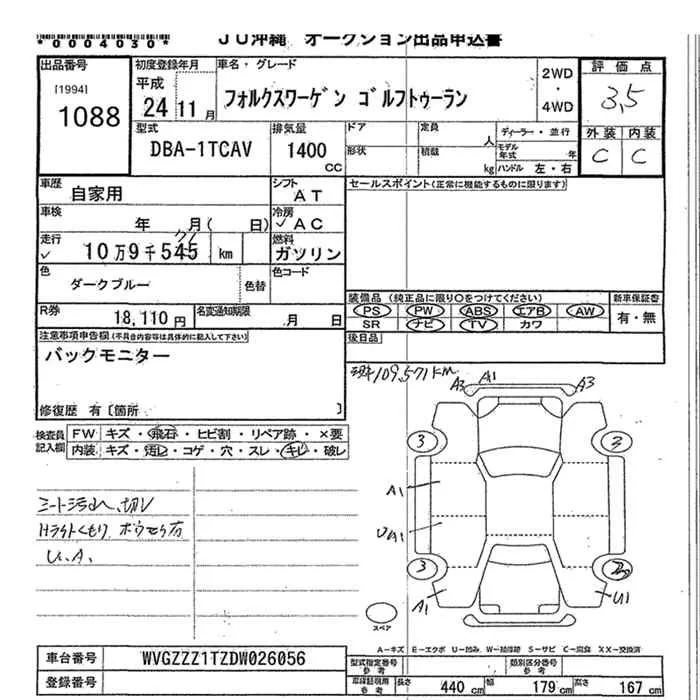 *0004030*
JU沖縄 オークション出品申込書
出品番号
[1994]
1088
初度登録年月
平成
24 11 月
車名・グレード
フォルクスワーゲン ゴルフトゥーラン
2WD
・
4WD
評価点
3,5
外装 内装
C C
型式
DBA-1TCAV
排気量
1400
CC
ドア
定員
人
形状
積載
kg
ディーラー・並行
モデル年式 年
ハンドル 左・右
車歴
自家用
シフト
AT
セールスポイント(正常に機能するものに限ります)
車検
年 月( 日)
冷房
✓AC
走行
✓ 10万9千545 km
燃料
ガソリン
色
ダークブルー
色替
色コード
R券
18,110円
名変通知期限
月 日
装備品 (純正品に限り○をつけてください)
PS PW ABS エアB AW
SR ナビ TV カワ
新車保証書
有・無
後日品
注意事項申告欄(不具合内容等は具体的に記入して下さい)
バックモニター
修復歴 有〔箇所 〕
現車109,571KM
検査員記入欄
FW キズ・飛石・ヒビ割・リペア跡・×要
内装 キズ・汚レ・コゲ・穴・スレ・キレ・破レ
シート汚れ、切レ
Hライトくもり
U.A.
A3 A1 A3
3 3
A1
UA1
3
A1 U1
スペア
A-キズ E-エクボ U-凹み W-補修跡 S-サビ C-腐食 XX-交換済
車台番号
WVGZZZ1TZDW026056
登録番号
型式指定番号
参考
類別区分番号
参考
車庫証明用
参考
長さ
440 cm
幅
179 cm
高さ
167 cm